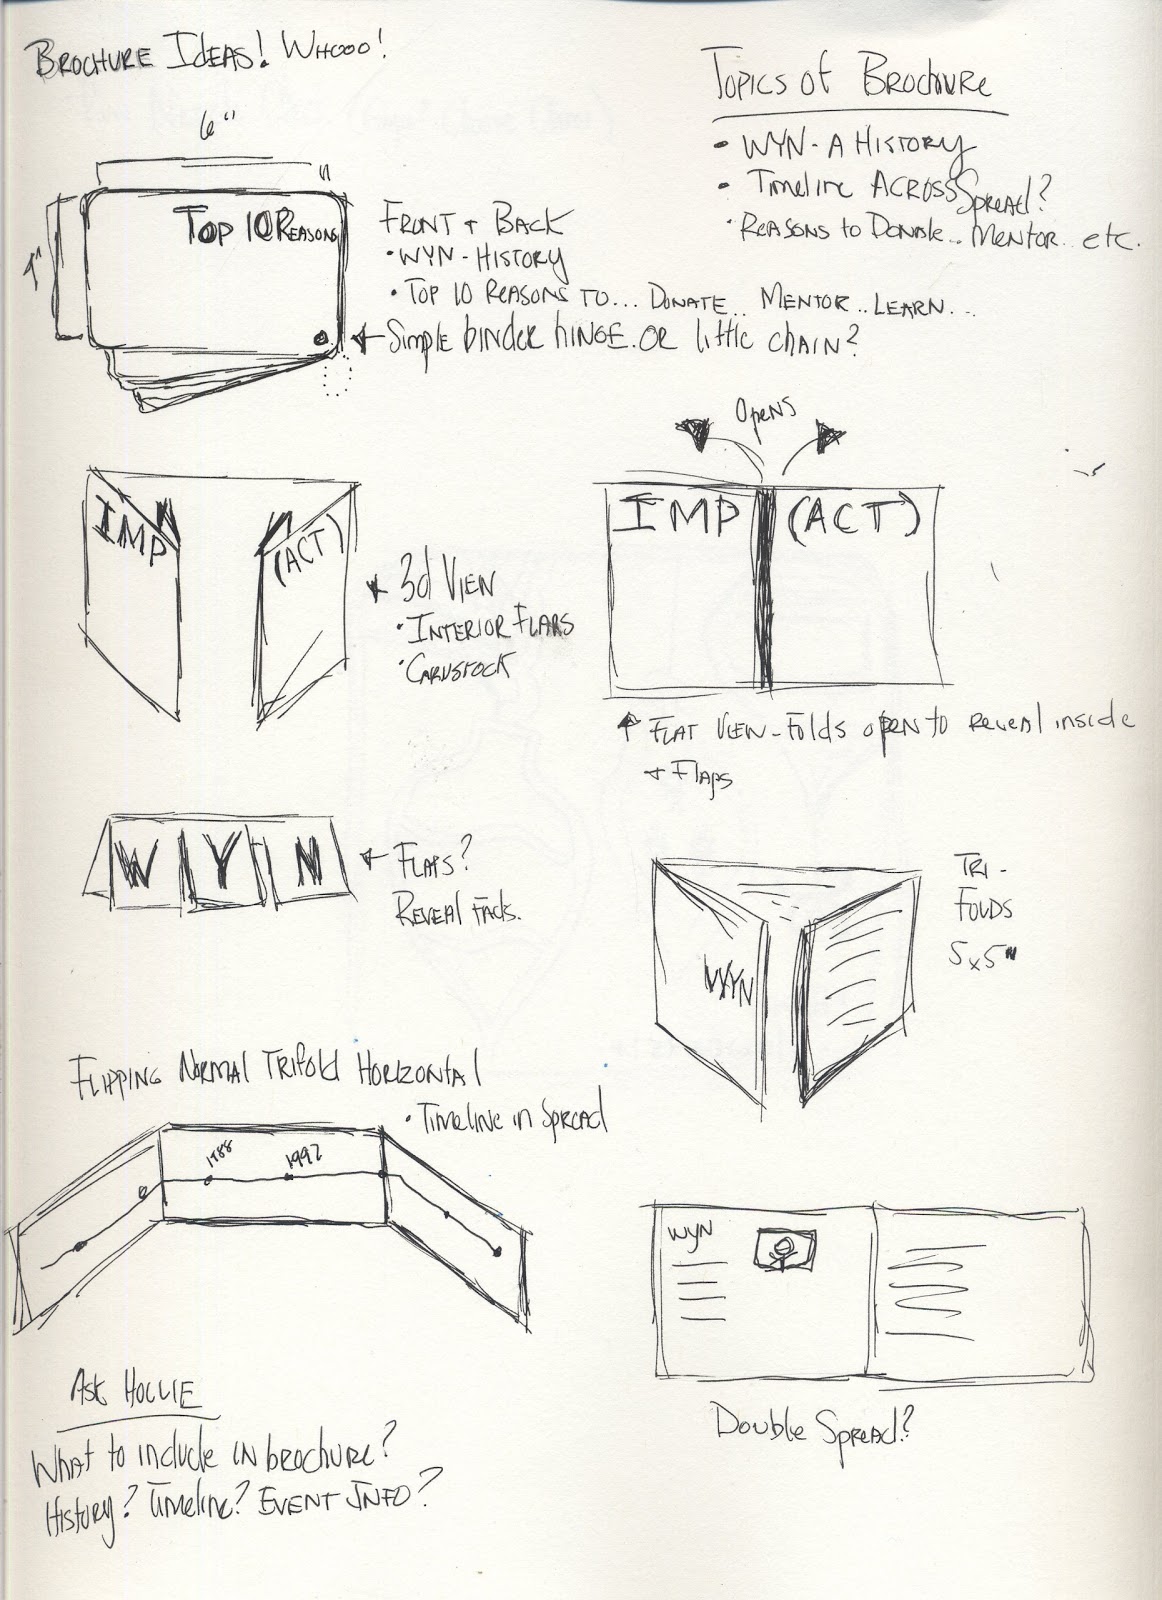 BROCHURE IDEAS! WHOOO!
TOPICS OF BROCHURE
• WYN - A HISTORY
• TIMELINE ACROSS SPREAD?
• REASONS TO DONATE... MENTOR... etc.
6"
4"
TOP 10 REASONS
FRONT + BACK
• WYN - HISTORY
• TOP 10 REASONS TO... DONATE... MENTOR... LEARN...
Simple binder hinge. OR little chain?
Opens
IMP (ACT)
IMP (ACT)
3d VIEW
• INTERIOR FLAPS
• CARDSTOCK
FLAT VIEW - Folds open to reveal inside
+ Flaps
W Y N
FLAPS?
REVEAL FACTS.
WYN
TRI -
FOLDS
5x5"
FLIPPING NORMAL TRIFOLD HORIZONTAL
• TIMELINE in SPREAD
1988 1992
WYN
DOUBLE SPREAD?
ASK HOLLIE
WHAT TO INCLUDE IN BROCHURE?
HISTORY? TIMELINE? EVENT INFO?